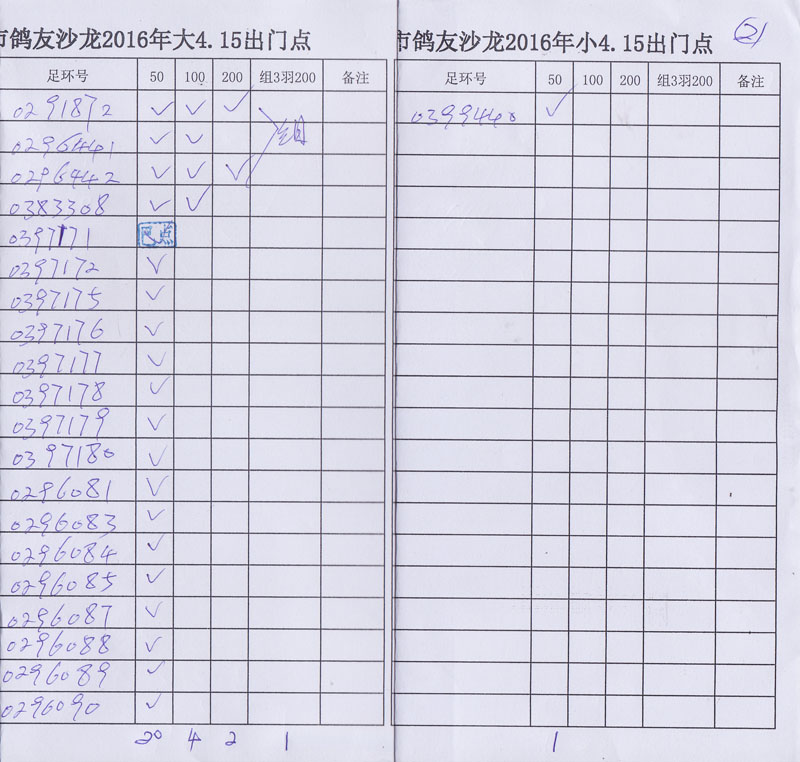 市鸽友沙龙2016年大4.15出门点
足环号 50 100 200 组3羽200 备注
0291872 ✓ ✓ ✓
0296441 ✓ ✓
0296442 ✓ ✓ ✓
0383308 ✓ ✓
0397171 已点
0397172 ✓
0397175 ✓
0397176 ✓
0397177 ✓
0397178 ✓
0397179 ✓
0397180 ✓
0296081 ✓
0296083 ✓
0296084 ✓
0296085 ✓
0296087 ✓
0296088 ✓
0296089 ✓
0296090 ✓
20 4 2 1
市鸽友沙龙2016年小4.15出门点
2
足环号 50 100 200 组3羽200 备注
0399440 ✓
1